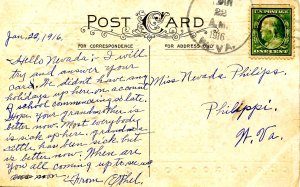 POST CARD
FOR CORRESPONDENCE
FOR ADDRESS ONLY
Jan, 20, 1916.
Hello Nevada:- I will
try and answer your
card. We didn't have any
holidays up here on account
of school commencing so late.
Hope your grandmother is
better now. Most everybody
is sick up here. grandma
has been sick but
is better now. When are
you all coming up to see us
From Ethel.
JAN
22
A.M.
1916
VA.
ONE CENT
Miss Nevada Philips.
Philippi,
W. Va.